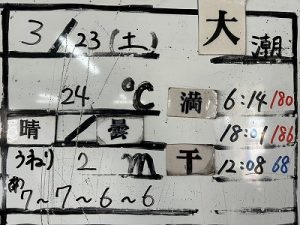 3/23(土) 大潮
24℃ 満 6:14 180
晴/曇 18:01 186
うねり 2m 干 12:08 68
7~7~6~6